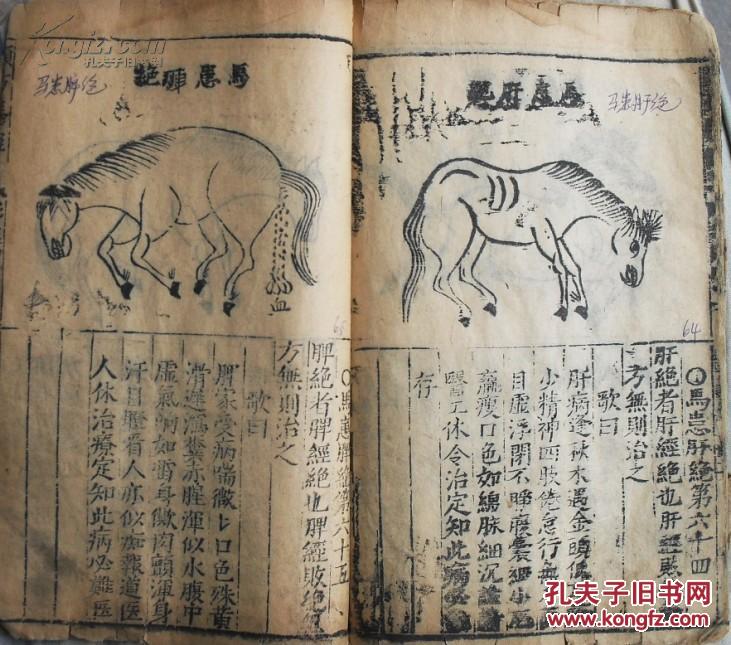 馬患肝絕
马患肝绝
64
○馬患肝絕第六十四
肝絕者肝經絕也肝經
方無則治之
歌曰
肝病逢秋木遇金頭低
少精神四肢倦怠行無
目虛浮閉不睜囊縮小
羸瘦口色如綿脉細沉
醫工休令治定知此病
存
馬患脾絕
马患脾绝
血
65
○馬患脾絕第六十五
脾絕者脾經絕也脾經敗絕
方無則治之
歌曰
脾家受病喘微〻口色殊黃
滑遲瀉糞赤腥渾似水腹中
虛氣响如雷身肉顫渾身
汗目瞪看人亦似痴報道医
人休治療定知此病必難医
Kongfz.com
孔夫子旧书网
孔夫子旧书网
www.kongfz.com